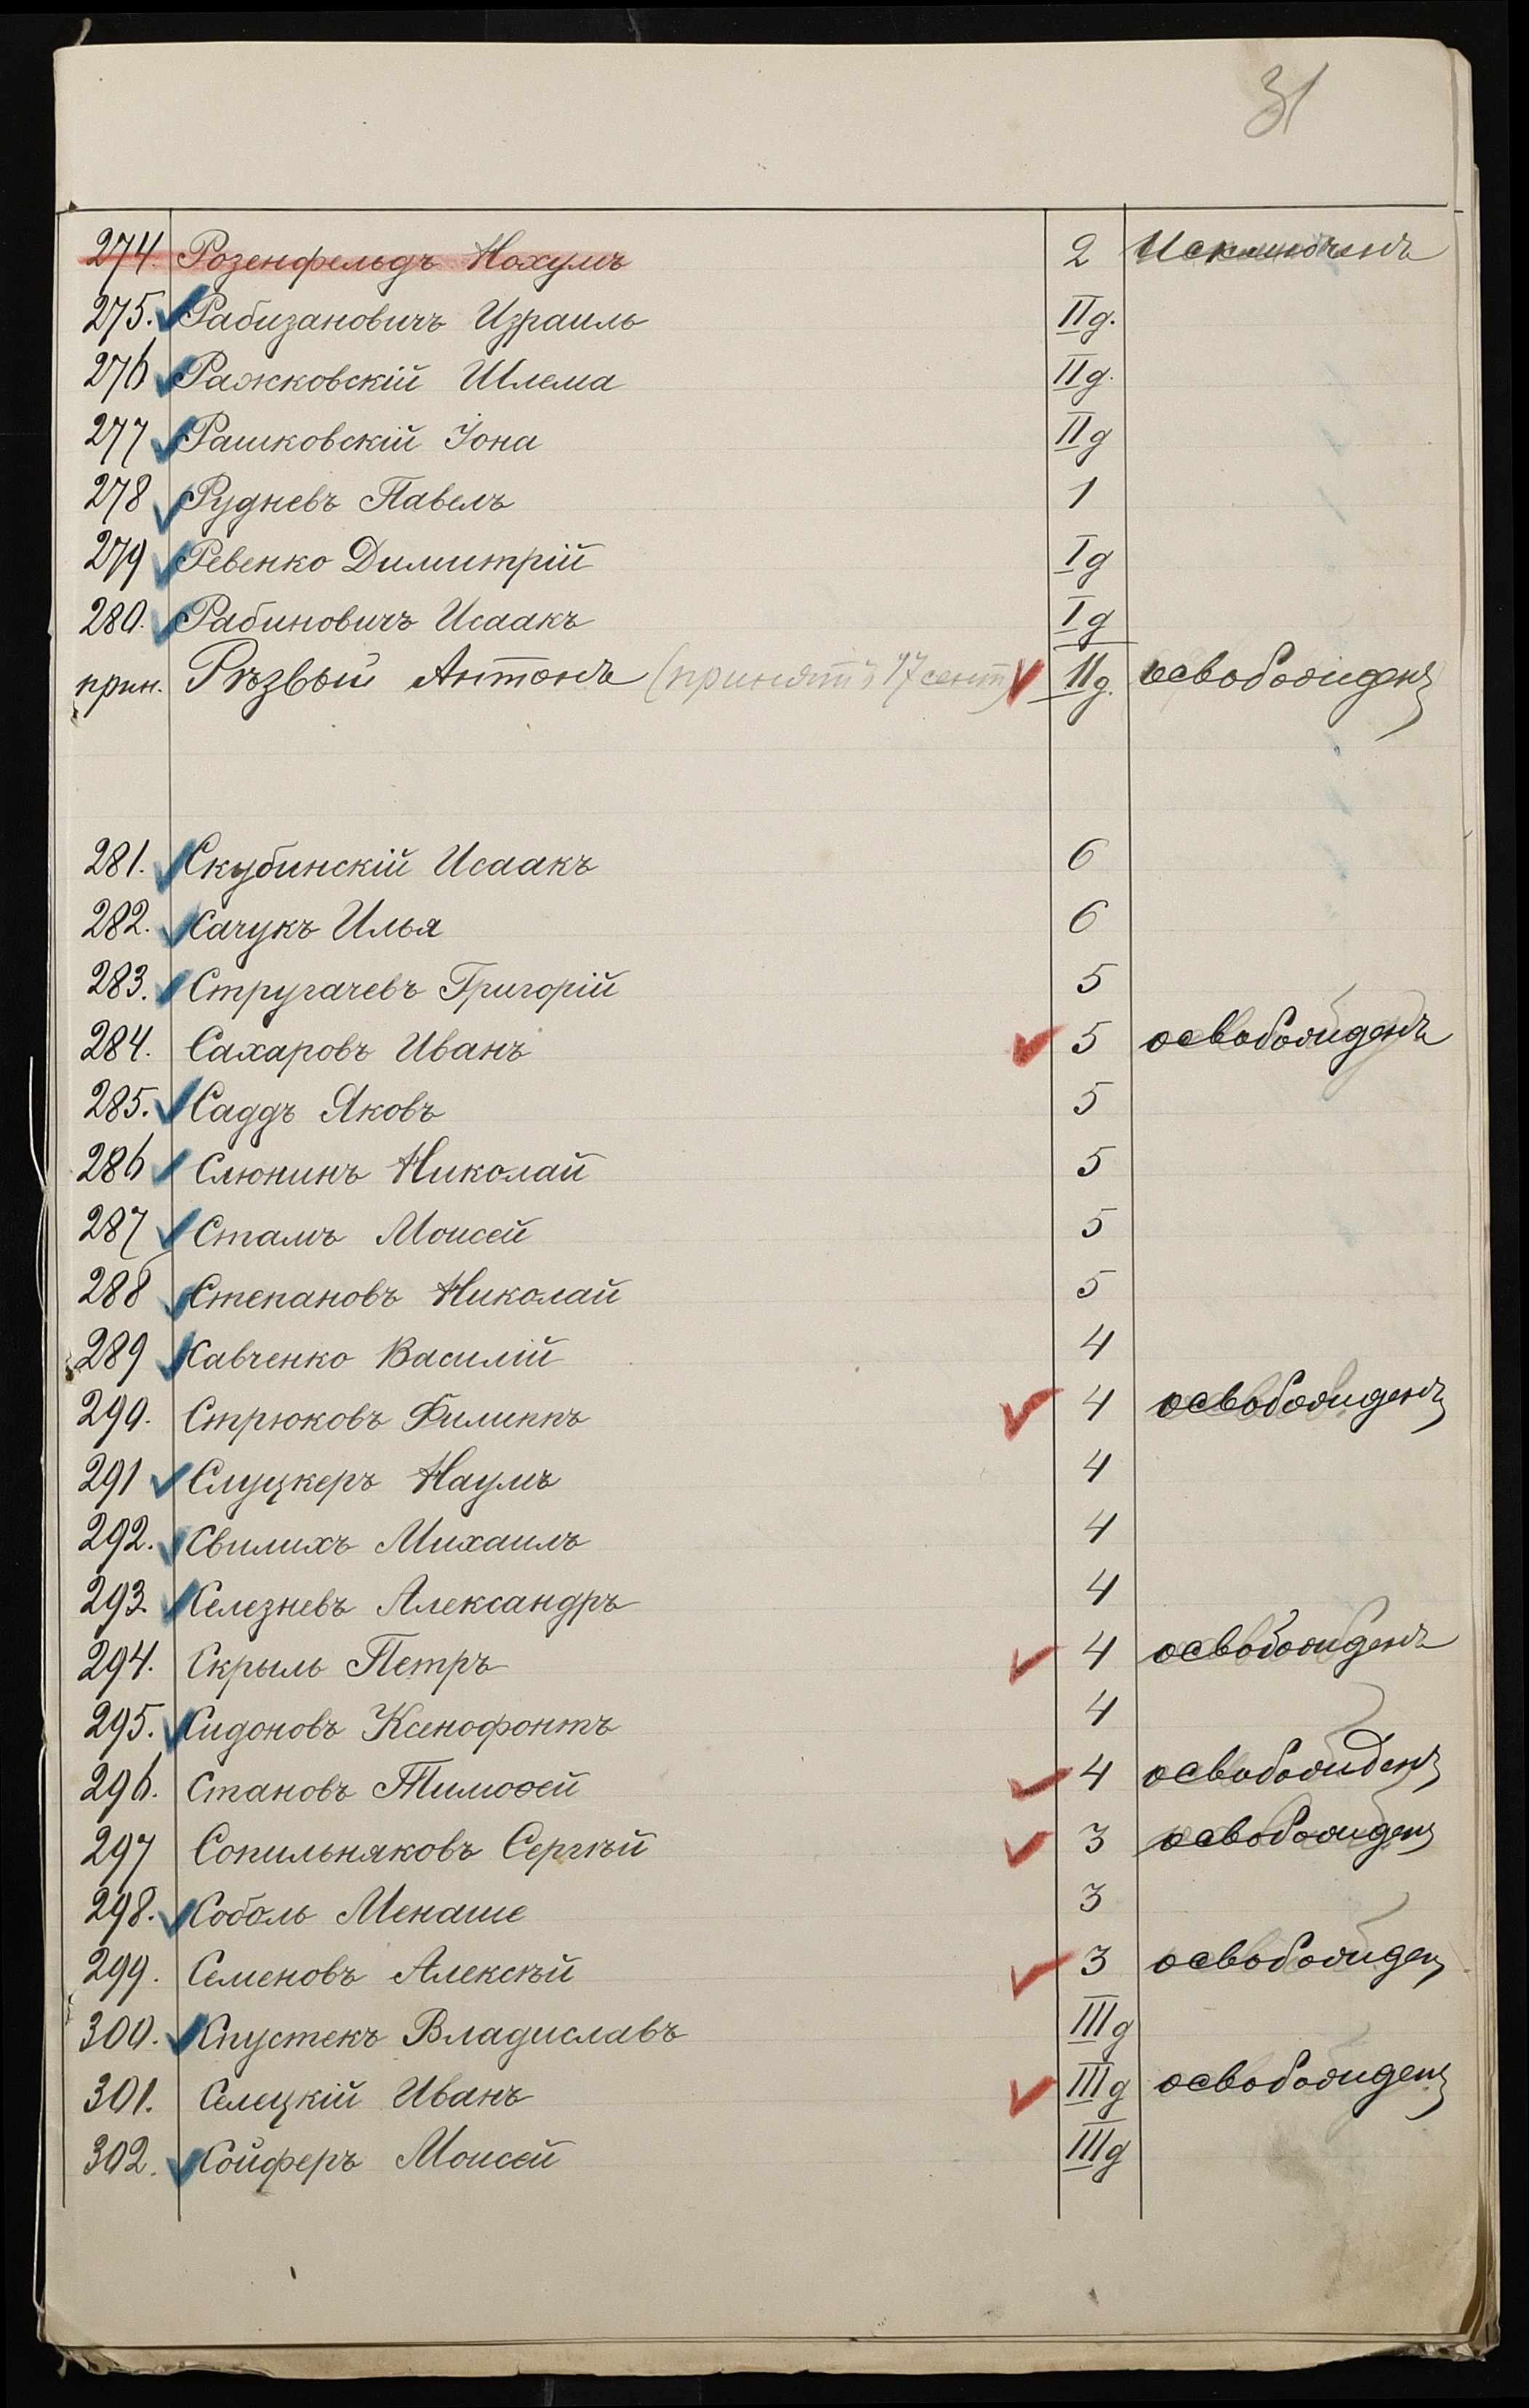 31
274. Розенфельдъ Нохумъ 2 Исключенъ
275. Рабизановичъ Израиль IIд.
276 Ражковскій Шлема IIд.
277 Рашковскій Іона IIд
278 Рудневъ Павелъ 1
279 Ревенко Димитрій Iд
280. Рабиновичъ Исаакъ Iд
прин. Рѣзвый Антонъ (принятъ 17 сент.) IIд. освобожденъ
281. Скубинскій Исаакъ 6
282. Сачукъ Илья 6
283. Стругачевъ Григорій 5
284. Сахаровъ Иванъ 5 освобожденъ
285. Саддъ Яковъ 5
286 Слюнинъ Николай 5
287 Сталь Моисей 5
288 Степановъ Николай 5
289 Савченко Василій 4
290. Стрюковъ Филиппъ 4 освобожденъ
291 Слуцкеръ Наумъ 4
292. Свилихъ Михаилъ 4
293. Селезневъ Александръ 4
294. Скрыль Петръ 4 освобожденъ
295. Сидоновъ Ксенофонтъ 4
296. Становъ Тимофей 4 освобожденъ
297 Сопильняковъ Сергѣй 3 освобожденъ
298. Соболь Менаше 3
299. Семеновъ Алексѣй 3 освобожденъ
300. Спустекъ Владиславъ IIIд
301. Селецкій Иванъ IIIд освобожденъ
302. Сойферъ Моисей IIIд